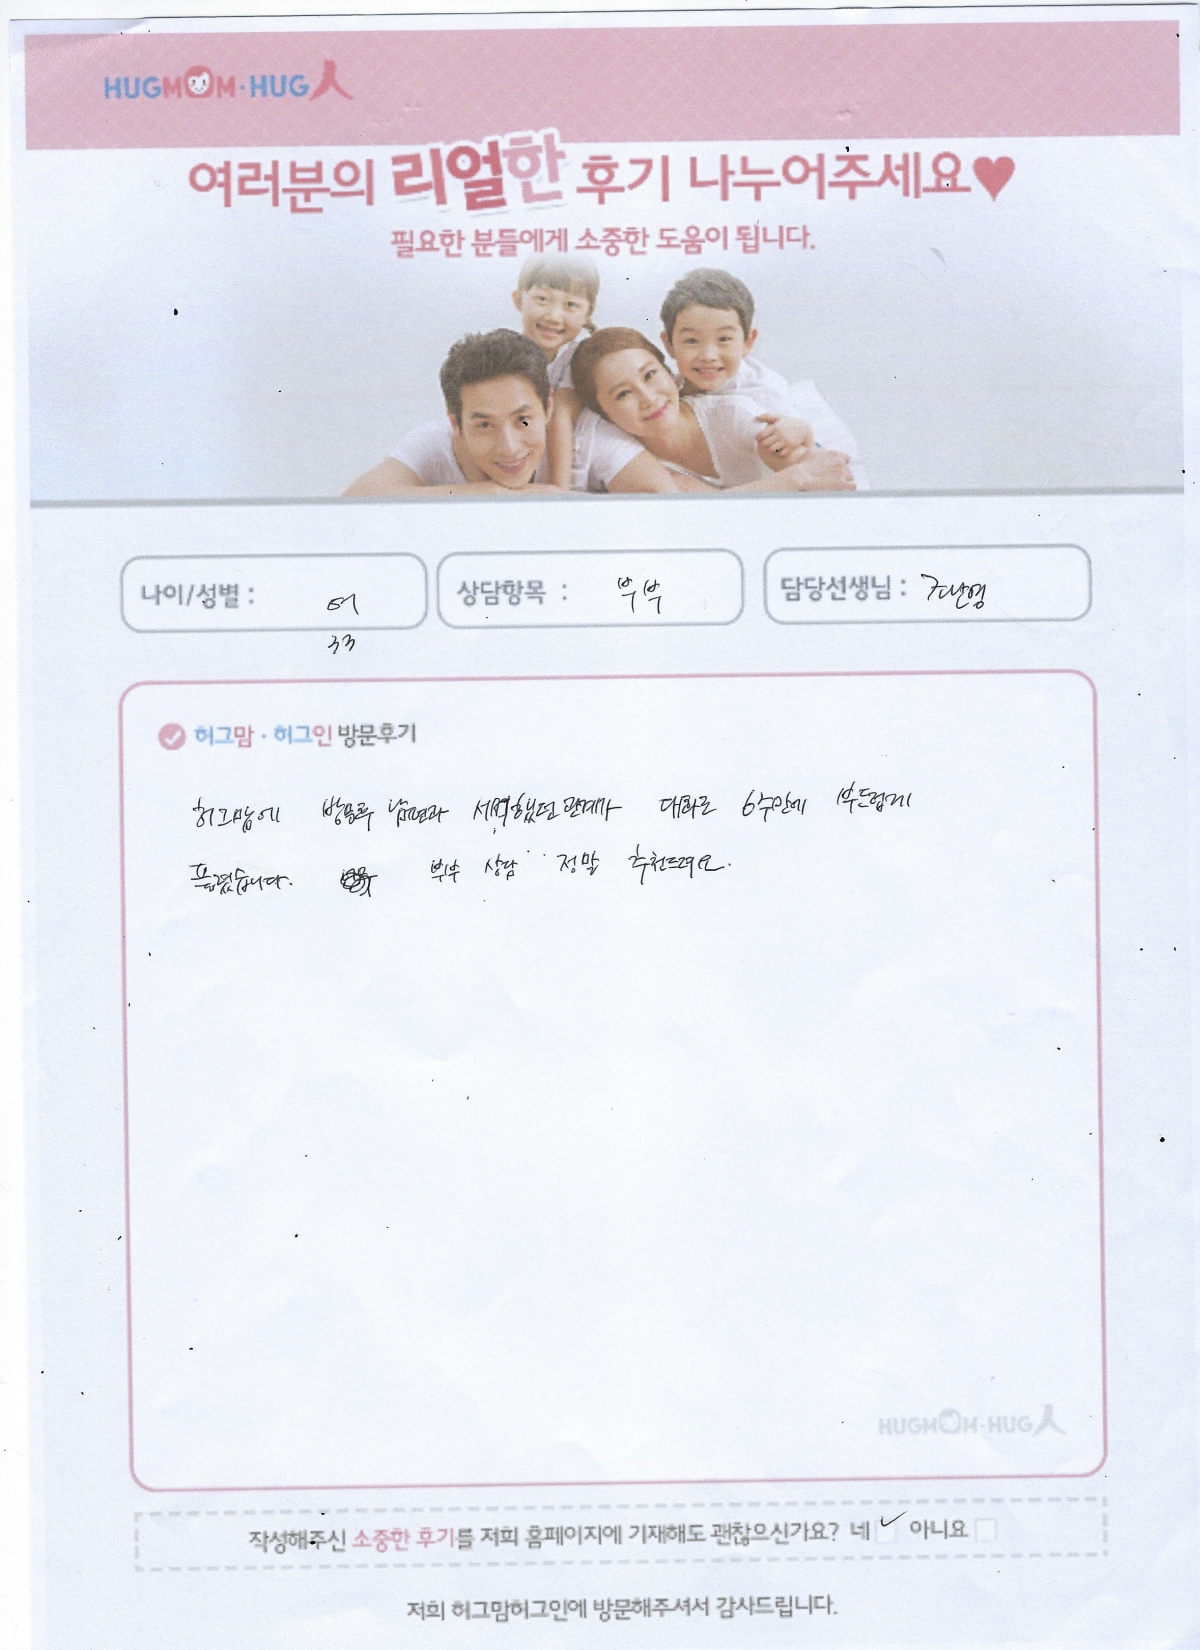 HUGMOM·HUG人
여러분의 리얼한 후기 나누어주세요♥
필요한 분들에게 소중한 도움이 됩니다.
나이/성별 : 여
33
상담항목 : 부부
담당선생님 : 구난영
허그맘·허그인 방문후기
허그맘에 방문후 남편과 서먹했던 관계가 대화로 6주만에 부드럽게
풀렸습니다. 부부 상담 정말 추천드려요.
HUGMOM·HUG人
작성해주신 소중한 후기를 저희 홈페이지에 기재해도 괜찮으신가요? 네 ✓ 아니요
저희 허그맘허그인에 방문해주셔서 감사드립니다.